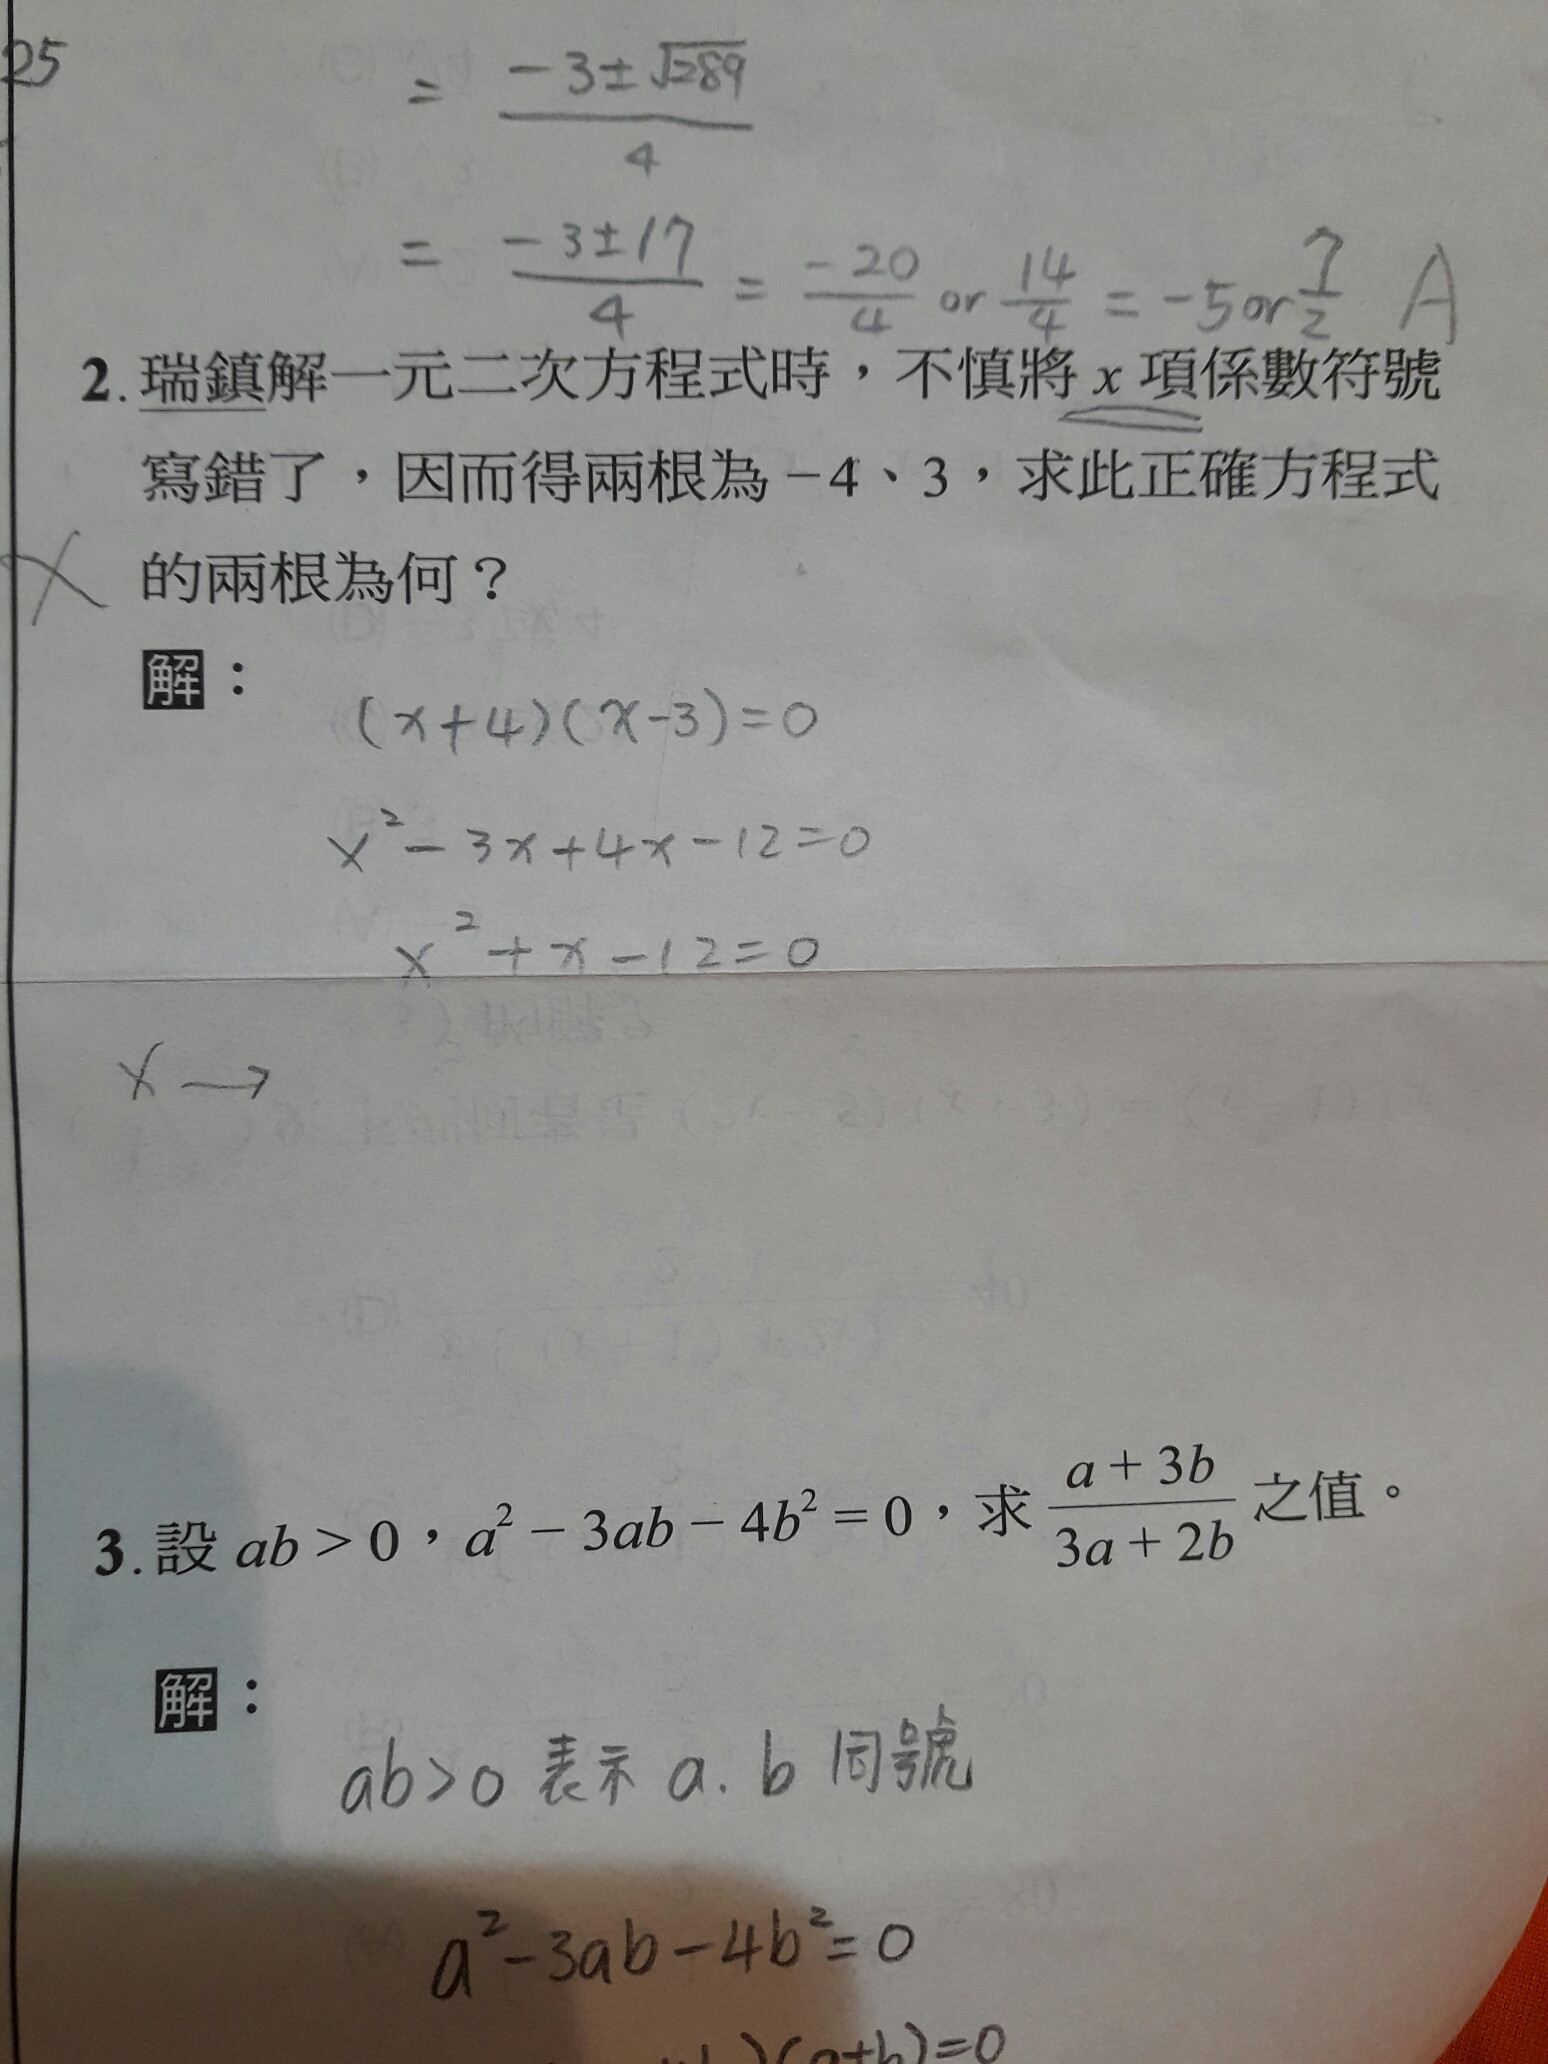 25
= \frac{-3±\sqrt{289}}{4}
= \frac{-3±17}{4} = \frac{-20}{4} or \frac{14}{4} = -5 or \frac{7}{2} A
2. 瑞鎮解一元二次方程式時，不慎將 x 項係數符號
寫錯了，因而得兩根為 −4、3，求此正確方程式
的兩根為何？
解：
(x+4)(x-3)=0
x²-3x+4x-12=0
x²+x-12=0
x→
3. 設 ab > 0，a² − 3ab − 4b² = 0，求 \frac{a + 3b}{3a + 2b} 之值。
解：
ab>0 表示 a. b 同號
a²-3ab-4b²=0
)(a+b)=0